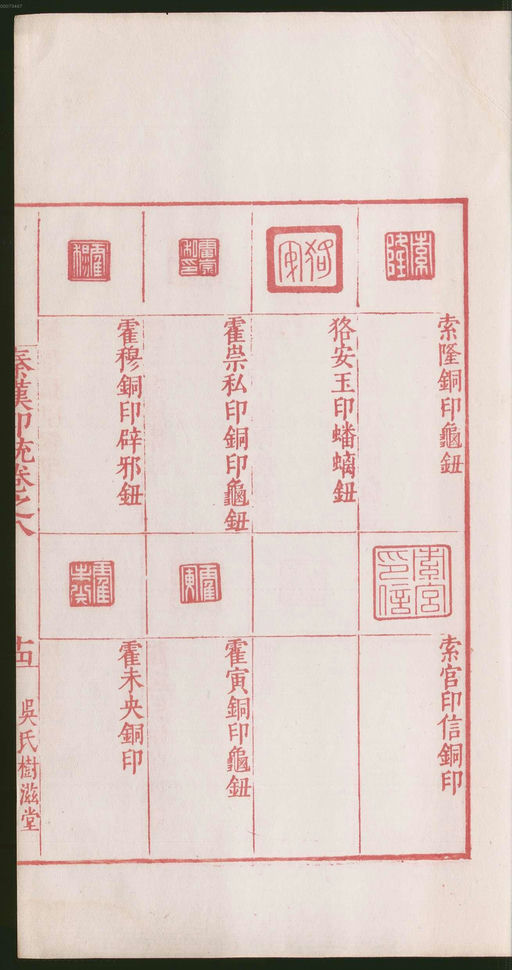 索隆銅印龜鈕
狢安玉印蟠螭鈕
霍祟私印銅印龜鈕
霍穆銅印辟邪鈕
索宫印信銅印
霍寅銅印龜鈕
霍未央銅印
秦漢印統卷之八
十四
吳氏樹滋堂
00073467